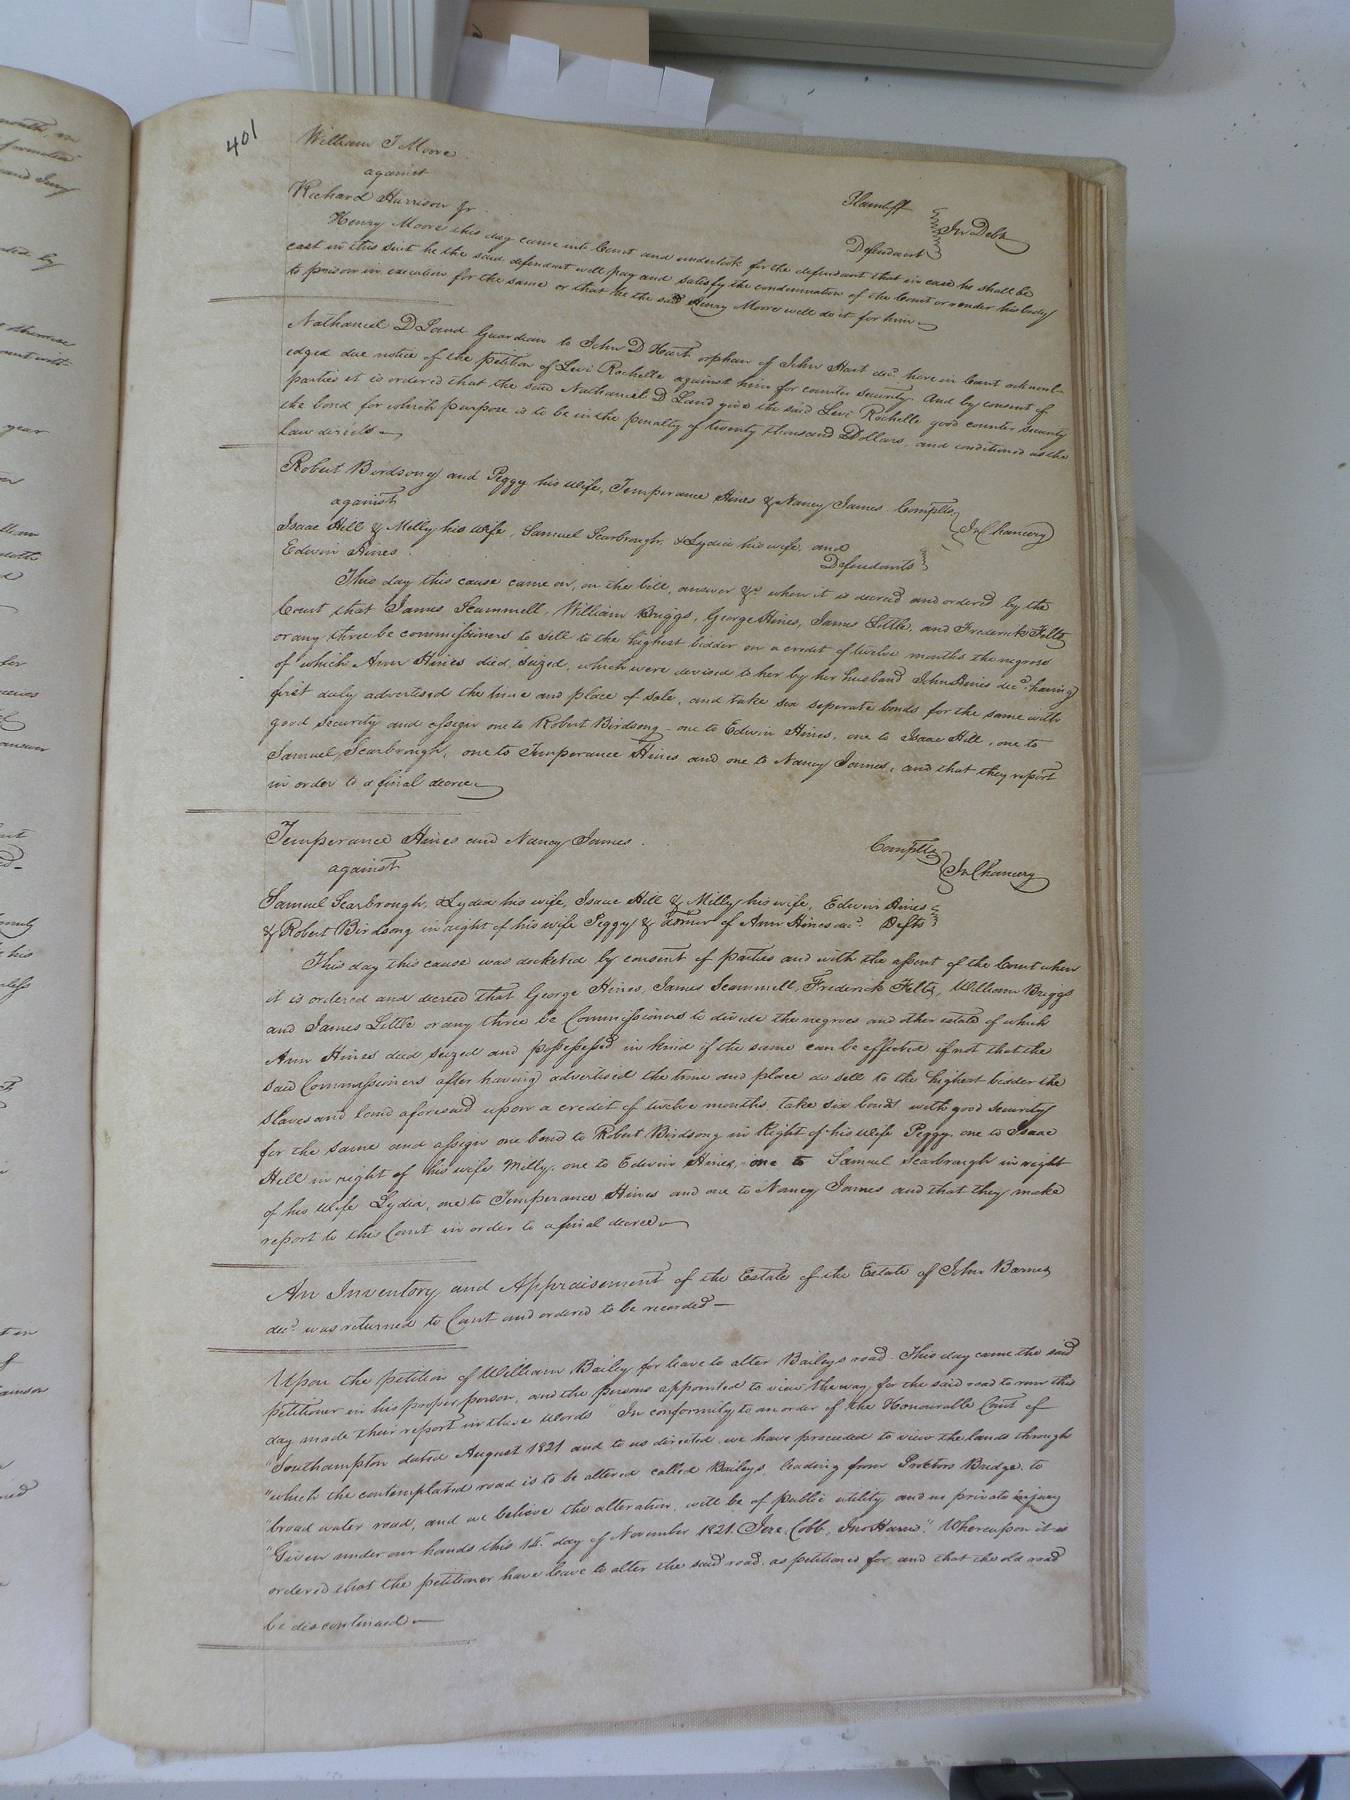 401
William T Moore Plaintiff
against } In Debt
Richard Harrison Jr Defendant
Henry Moore this day came into Court and undertook for the defendant that in case he shall be
cast in this suit he the said defendant will pay and satisfy the condemnation of the Court or render his body
to prison in execution for the same or that he the said Henry Moore will do it for him
Nathaniel D Land Guardian to John D Hart orphan of John Hart decd. here in Court acknowl-
edged due notice of the petition of Levi Rochelle against him for counter security And by consent of
parties it is ordered that the said Nathaniel D Land give the said Levi Rochelle good counter security
the bond for which purpose is to be in the penalty of twenty thousand Dollars, and conditioned as the
Law directs
Robert Birdsong and Peggy his wife, Temperance Hines & Nancy James Complts
against } In Chancery
Isaac Hill & Milly his wife, Samuel Scarbrough & Lydia his wife, and
Edwin Hines. Defendants
This day this cause came on, on the bill, answer &c when it is decreed and ordered by the
Court that James Scammell, William Briggs, George Hines, James Little, and Frederick Felts
or any three be commissioners to sell to the highest bidder on a credit of twelve months the negroes
of which Ann Hines died seized, which were devised to her by her husband John Hines decd. having
first duly advertised the time and place of sale, and take six seperate bonds for the same with
good security and assign one to Robert Birdsong one to Edwin Hines, one to Isaac Hill, one to
Samuel Scarbrough, one to Temperance Hines and one to Nancy James, and that they report
in order to a final decree
Temperance Hines and Nancy James. Complts
against } In Chancery
Samuel Scarbrough, & Lydia his wife, Isaac Hill & Milly his wife, Edwin Hines
& Robert Birdsong in right of his wife Peggy & admor of Ann Hines decd. Defts
This day this cause was docketed by consent of parties and with the assent of the Court when
it is ordered and decreed that George Hines, James Scammell, Frederick Felts, William Briggs
and James Little or any three be Commissioners to divide the negroes and other estate of which
Ann Hines died seized and possessed in kind if the same can be effected if not that the
said Commissioners after having advertised the time and place do sell to the highest bidder the
slaves and land aforesaid upon a credit of twelve months take six bonds with good security
for the same and assign one bond to Robert Birdsong in Right of his wife Peggy, one to Isaac
Hill in right of his wife Milly, one to Edwin Hines, one to Samuel Scarbrough in right
of his wife Lydia, one to Temperance Hines and one to Nancy James and that they make
report to this Court in order to a final decree
An Inventory and Appraisement of the Estate of the Estate of John Barnes
decd. was returned to Court and ordered to be recorded
Upon the petition of William Bailey for leave to alter Baileys road. This day came the said
petitioner in his proper person, and the persons appointed to view the way for the said road to run this
day made their report in these words "In conformity to an order of the Honourable Court of
"Southampton dated August 1821 and to us directed we have proceeded to view the lands through
"which the contemplated road is to be altered called Baileys, leading from Proctors Bridge to
"broad water road, and we believe the alteration will be of public utility and no private injury
"Given under our hands this 14th. day of November 1821. Jere. Cobb, Jno Harris." Whereupon it is
ordered that the petitioner have leave to alter the said road, as petitioned for, and that the old road
be discontinued